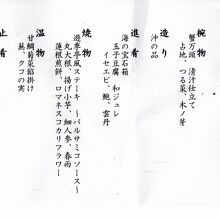 椀物
蟹万頭、清汁仕立て
占地、つる菜、木ノ芽
造り
沖の品
進肴
海の宝石箱
玉子豆腐　和ジュレ
イセエビ、鮑、雲丹
焼物
遊季亭風ステーキ　～バルサミコソース～
丸大根、揚げ小芋、細人参、春雨
蓮根煎餅、ロマネスコカリフラワー
温物
甘鯛菊菜餡掛け
蕪、クコの実
止肴